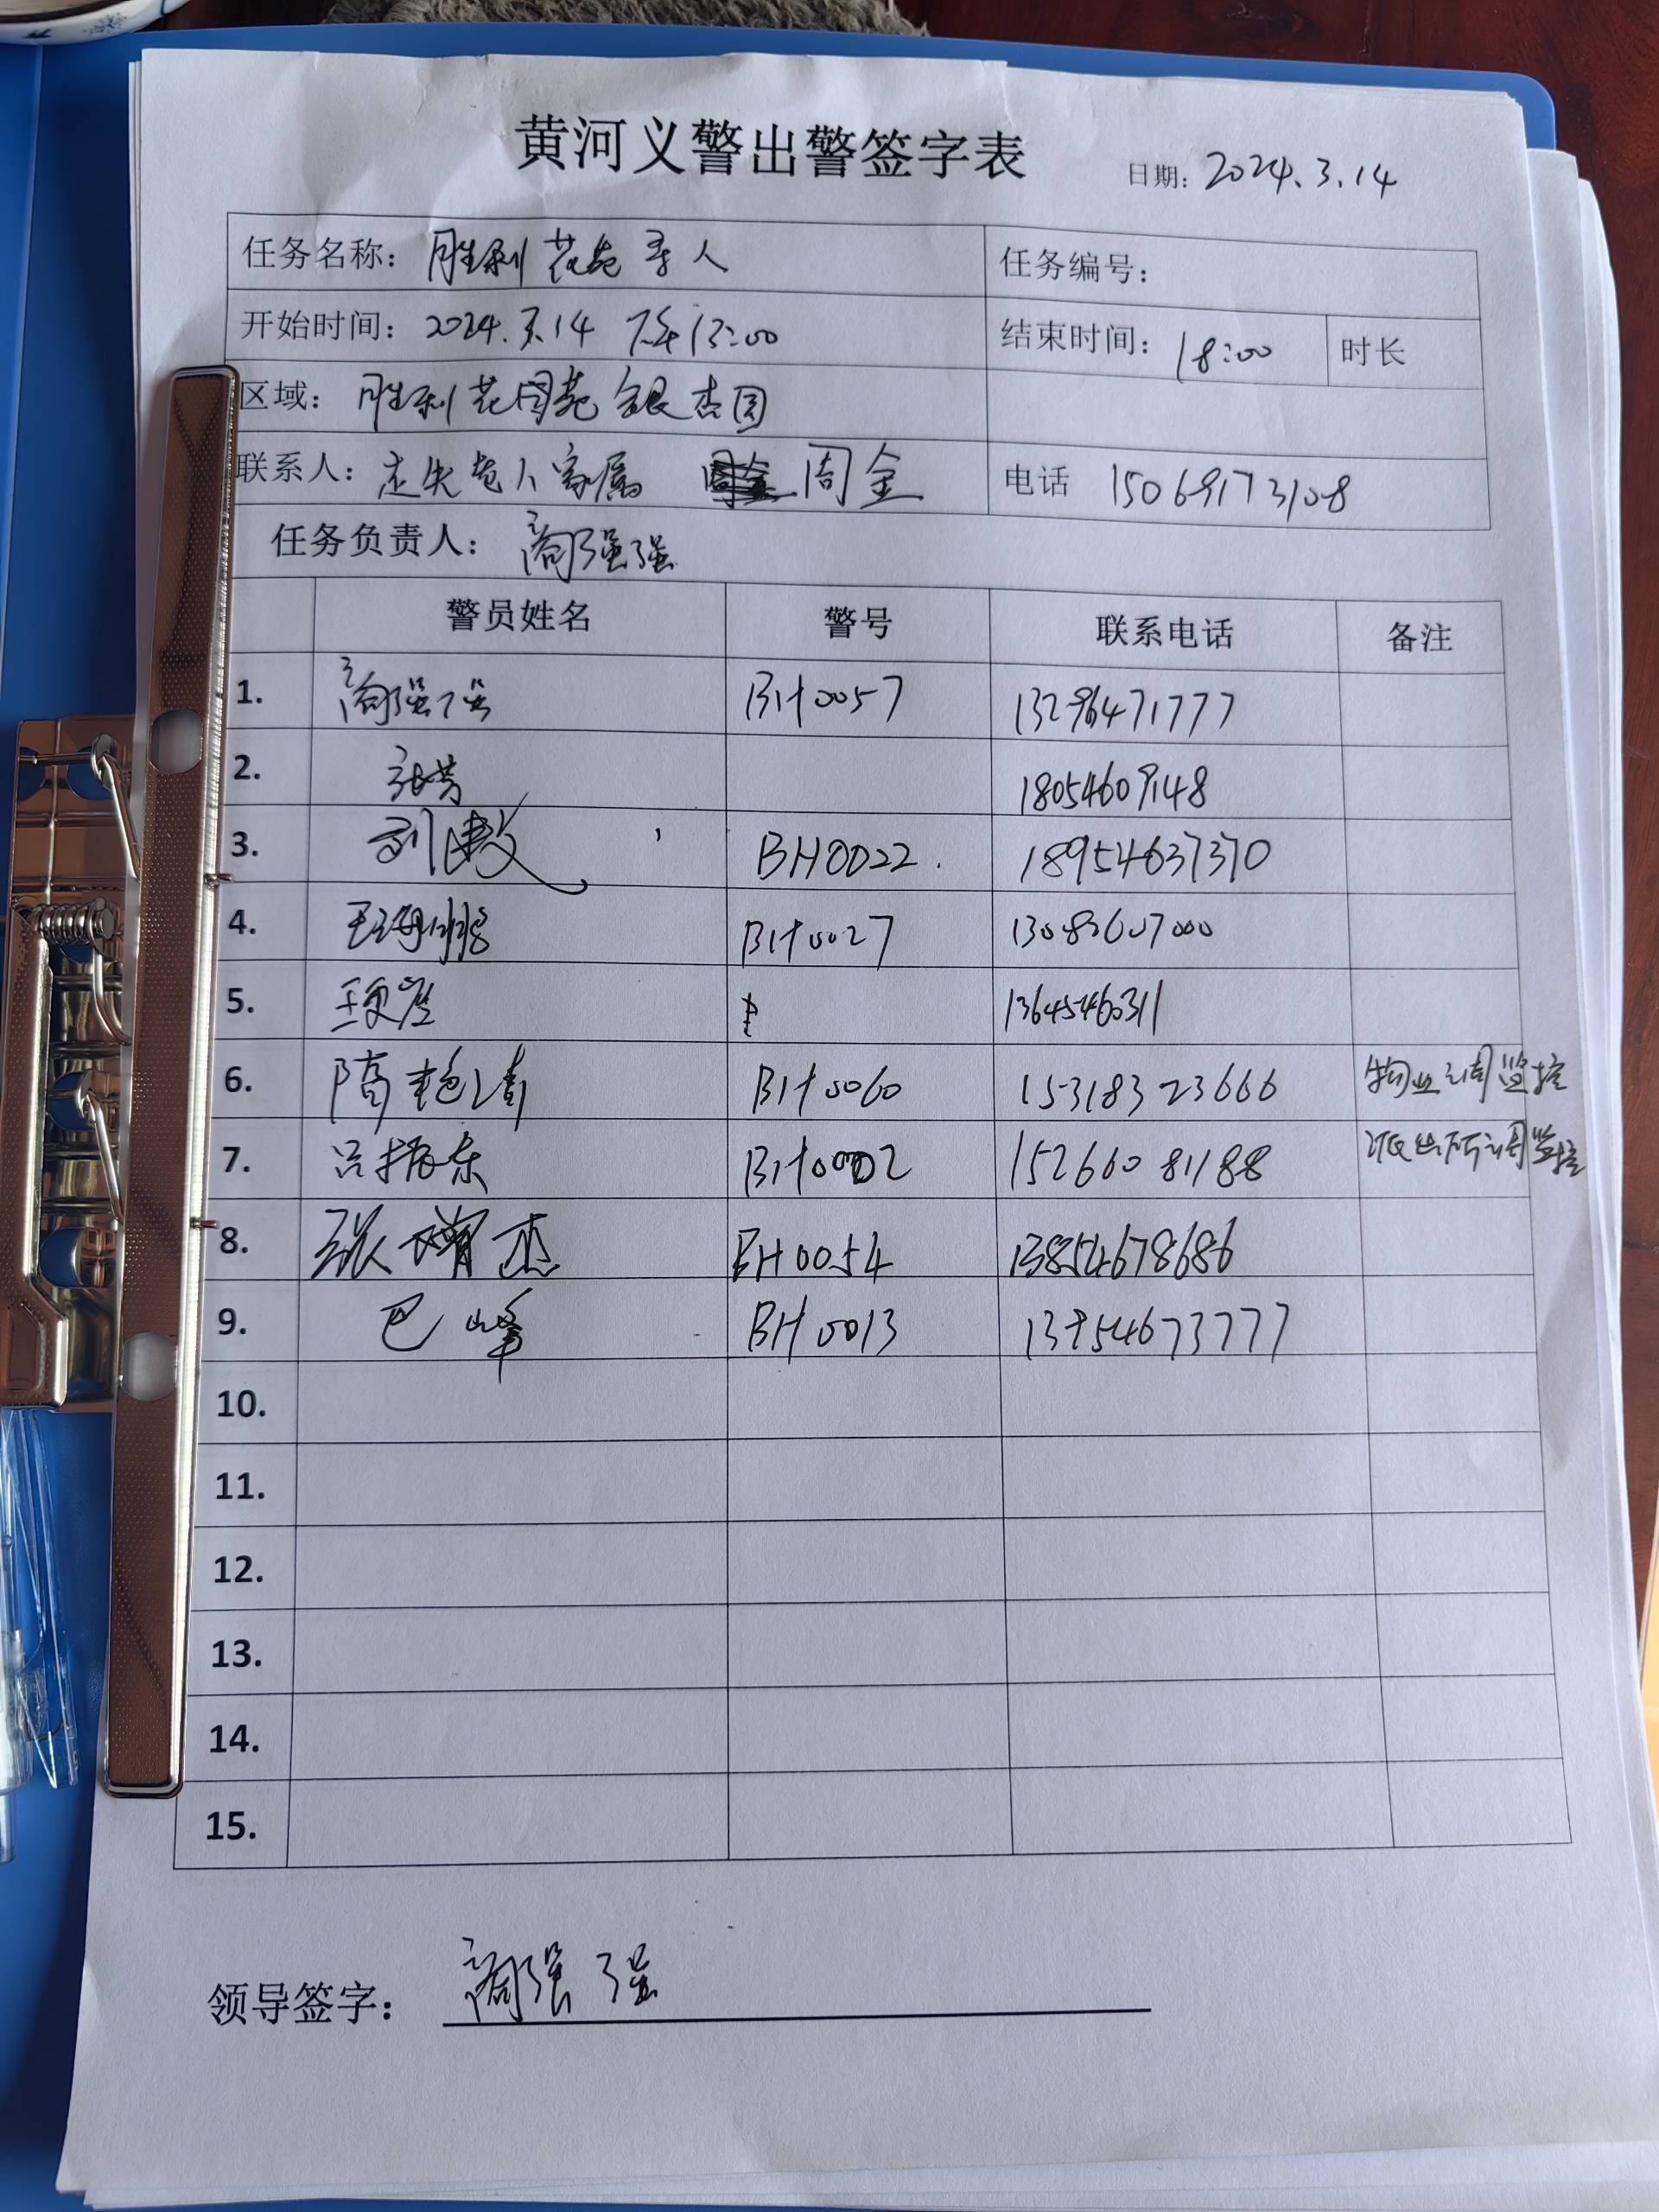 黄河义警出警签字表
日期: 2024.3.14
任务名称: 胜利花苑寻人 任务编号:
开始时间: 2024.3.14 下午13:00 结束时间: 18:00 时长
区域: 胜利花园苑 银杏园
联系人: 走失老人家属 周金 电话 15069173108
任务负责人: 商强强
警员姓名 警号 联系电话 备注
1. 商强强 BH0057 13296471777
2. 张芳 18054609148
3. 刘 BH0022. 18954637370
4. 王海 BH0027 13082607000
5. 王 13645460311
6. 隋艳清 BH0060 15318323666 物业调监控
7. 吕振东 BH0002 15266081188 派出所调监控
8. 张增杰 BH0054 13854678686
9. 巴峰 BH0013 13954673777
10.
11.
12.
13.
14.
15.
领导签字: 商强强